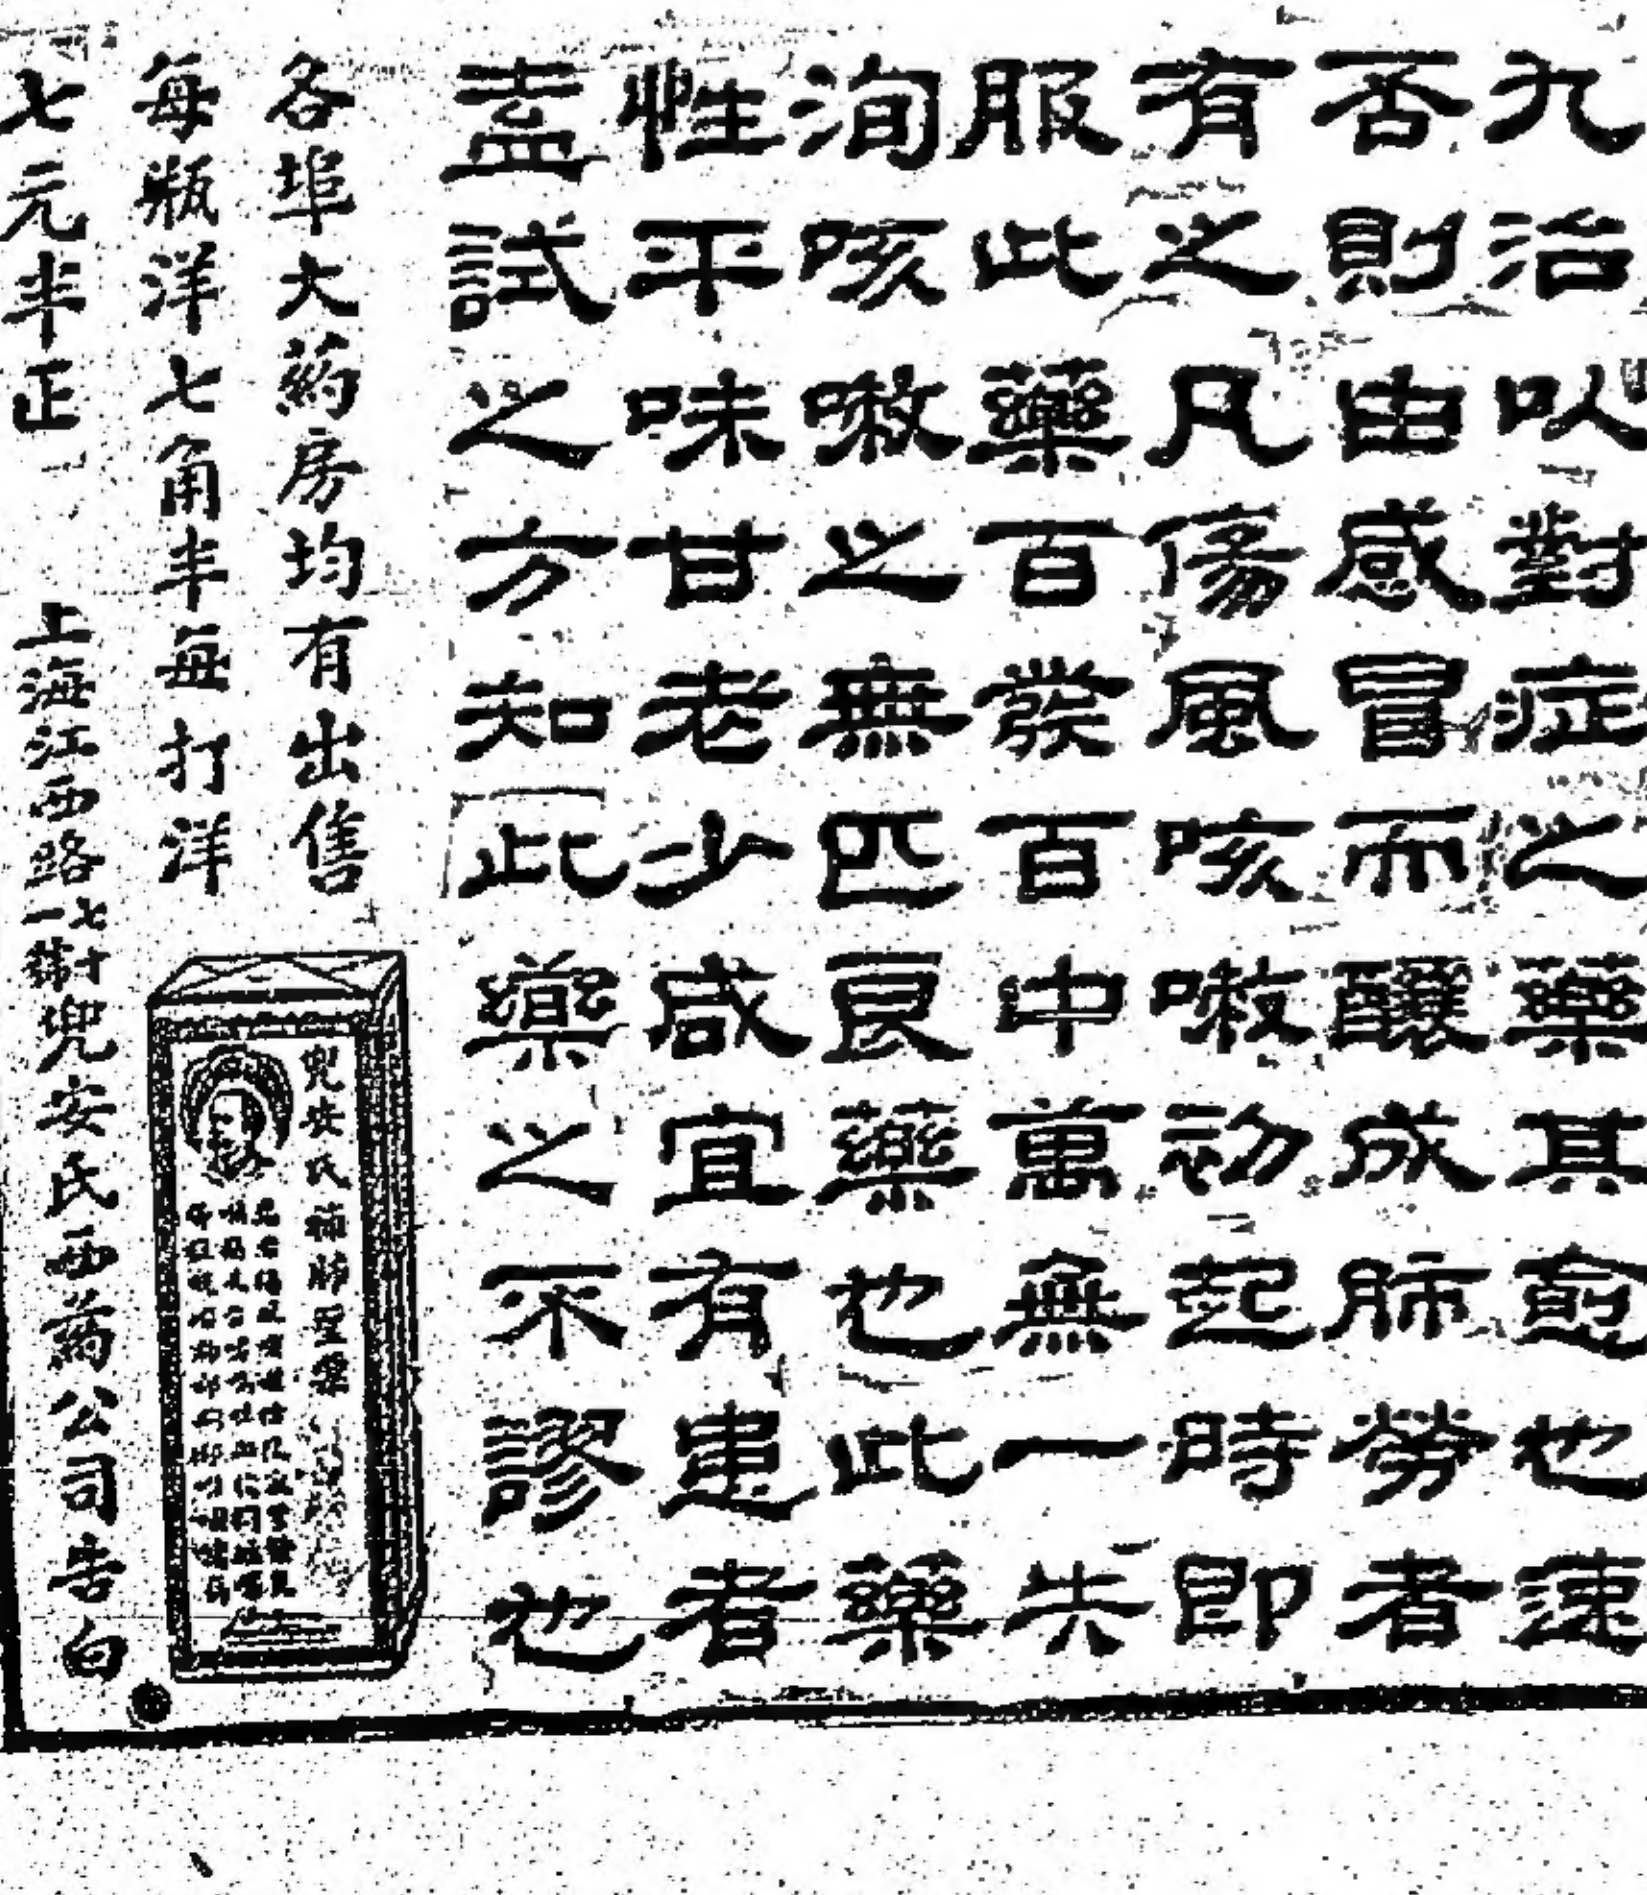 九治以對症之藥其愈也速
否則由感冒而釀成肺勞者
有之凡傷風咳嗽初起時即
服此藥百發百中萬無一失
洵咳嗽之無匹良藥也此藥
性平味甘老少咸宜有患者
盍試之方知此藥之不謬也
各埠大葯房均有出售
每瓶洋七角半每打洋
七元半正
上海江西路七十一號兜安氏西葯公司告白
兜安氏補肺聖藥